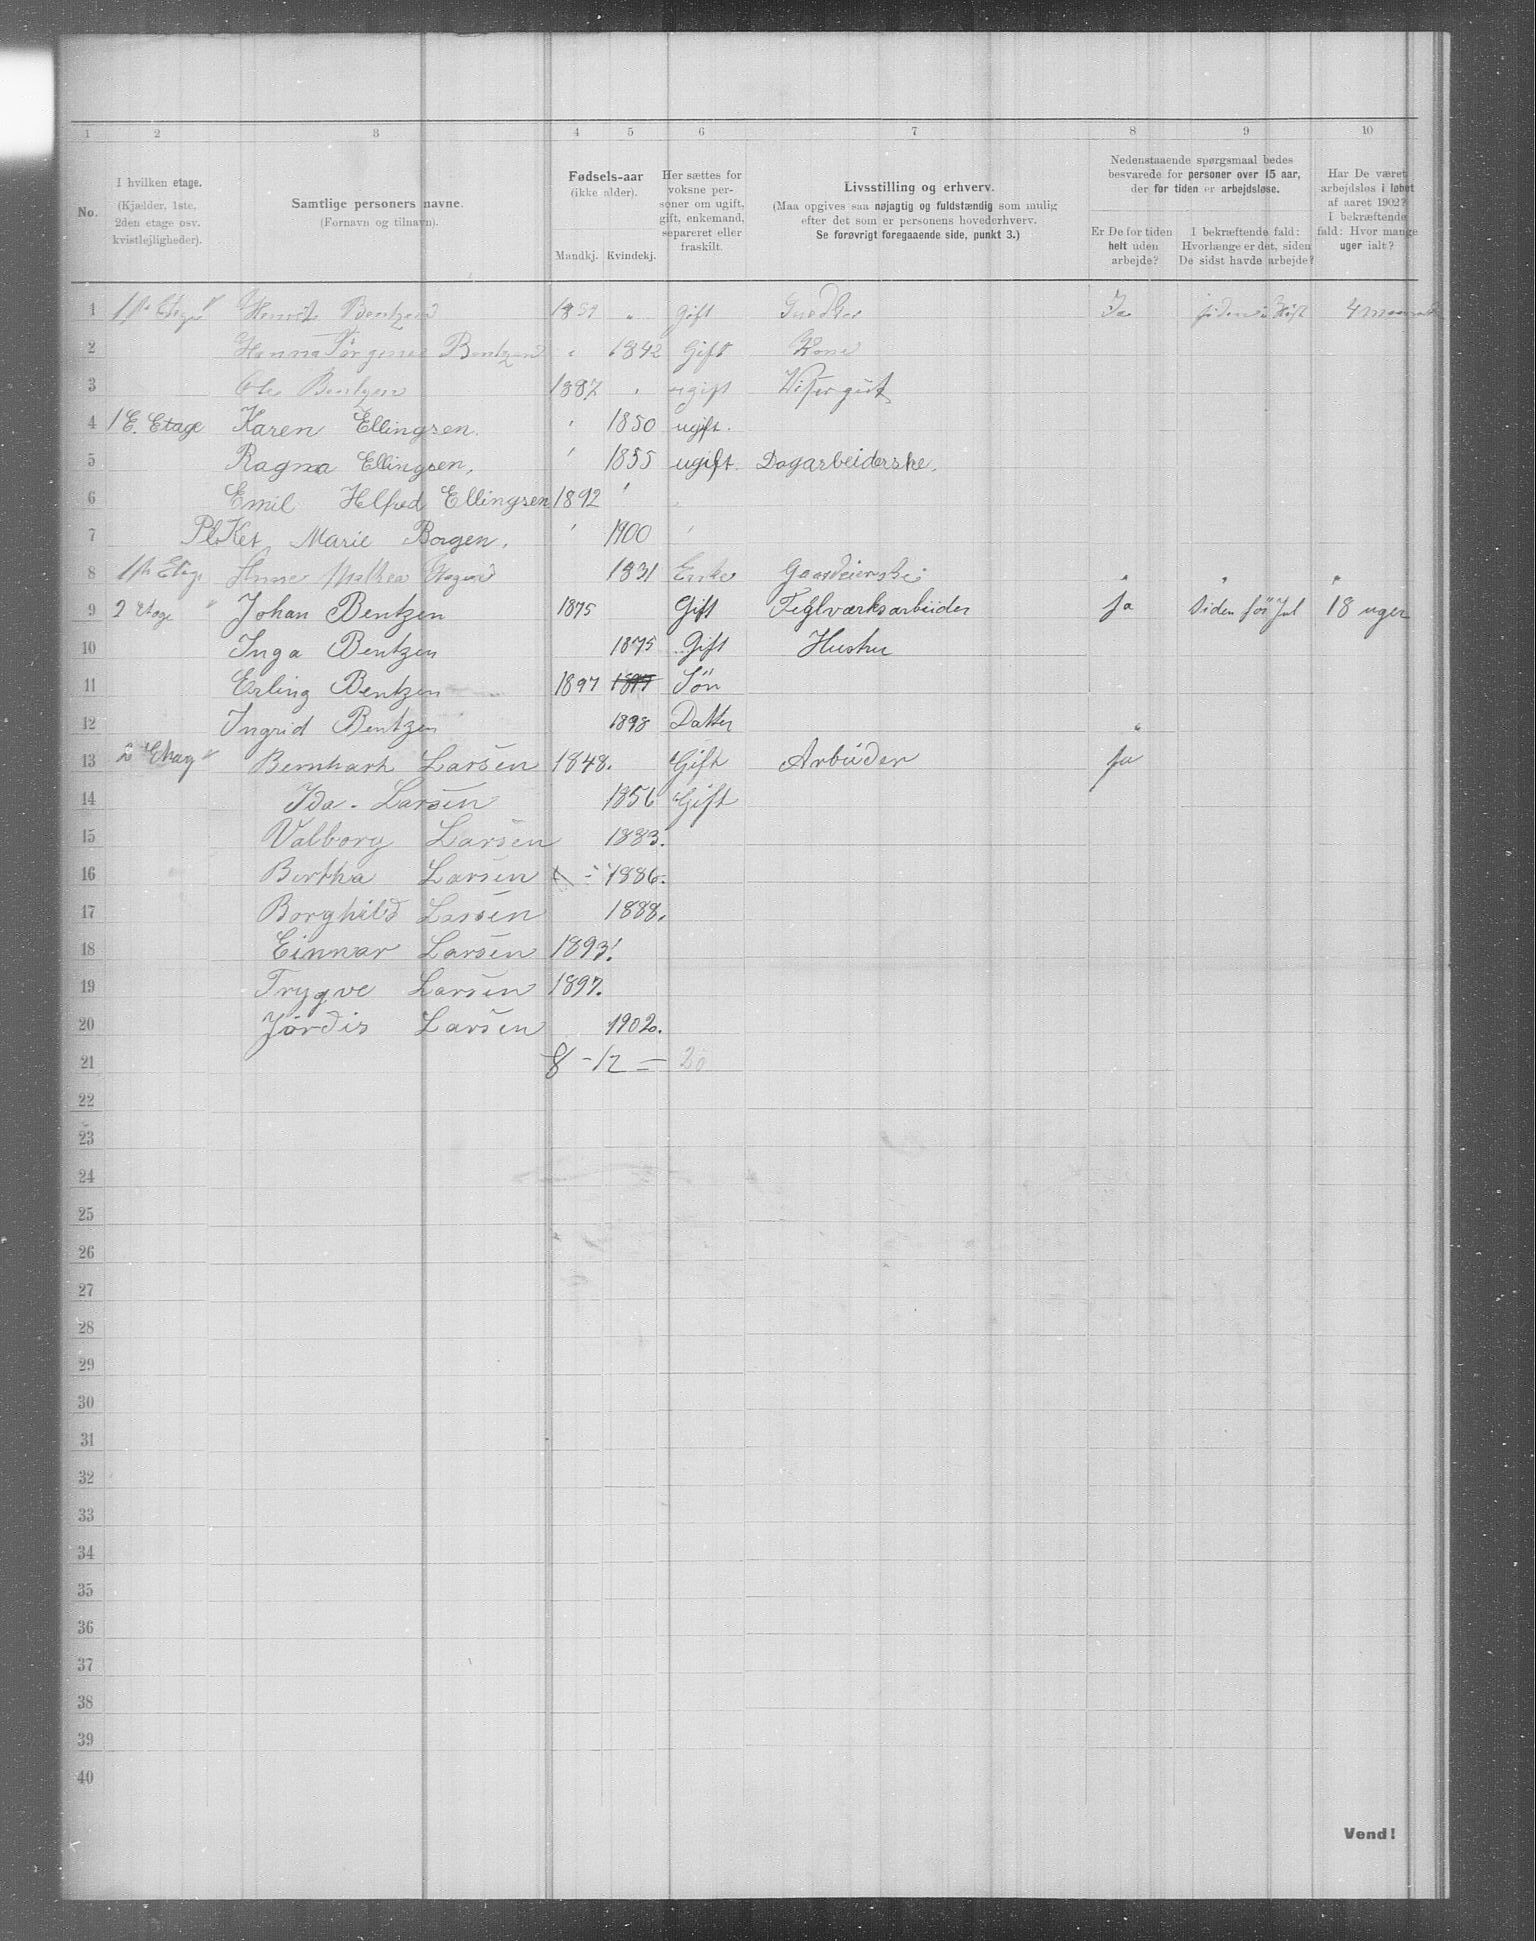 1 2 3 4 5 6 7 8 9 10
No.
I hvilken etage.
(Kjælder, 1ste,
2den etage osv.
kvistlejligheder).
Samtlige personers navne.
(Fornavn og tilnavn).
Fødsels-aar
(ikke alder).
Mandkj. Kvindekj.
Her sættes for
voksne per-
soner om ugift,
gift, enkemand,
separeret eller
fraskilt.
Livsstilling og erhverv.
(Maa opgives saa nøjagtig og fuldstændig som mulig
efter det som er personens hovederhverv.
Se forøvrigt foregaaende side, punkt 3.)
Nedenstaaende spørgsmaal bedes
besvarede for personer over 15 aar,
der for tiden er arbejdsløse.
Er De for tiden
helt uden
arbejde?
I bekræftende fald:
Hvorlænge er det, siden
De sidst havde arbejde?
Har De været
arbejdsløs i løbet
af aaret 1902?
I bekræftende
fald: Hvor mange
uger ialt?
1 Bentzen " Gift Ja siden i Høst
2 Hanna Jørgine Bentzen " 1842 Gift Kone
3 Ole Bentzen 1887 " ugift Visergut
4 1 E. Etage Karen Ellingsen. " 1850 ugift.
5 Ragna Ellingsen. " 1855 ugift. Dagarbeiderske.
6 Emil Hlfred Ellingsen 1892 " "
7 Marie Borgen. " 1900 "
8 Anne Mathea 1831 Enke " " "
9 2 Etage " Johan Bentzen 1875 Gift Teglværksarbeider Ja Siden før Jul 18 uger
10 Inga Bentzen 1875 Gift Hustru
11 Erling Bentzen 1897 1897 Søn
12 Ingrid Bentzen 1898 Datter "
13 2 Etag " Bernhart Larsen 1848. Gift Arbeider Ja
14 Ida. Larsen 1856 Gift
15 Valborg Larsen 1883.
16 Bertha Larsen 1886.
17 Borghild Larsen 1888.
18 Einnar Larsen 1893.
19 Trygve Larsen 1897.
20 Jørdis Larsen 1902.
21 8 - 12 = 20
22
23
24
25
26
27
28
29
30
31
32
33
34
35
36
37
38
39
40
Vend!